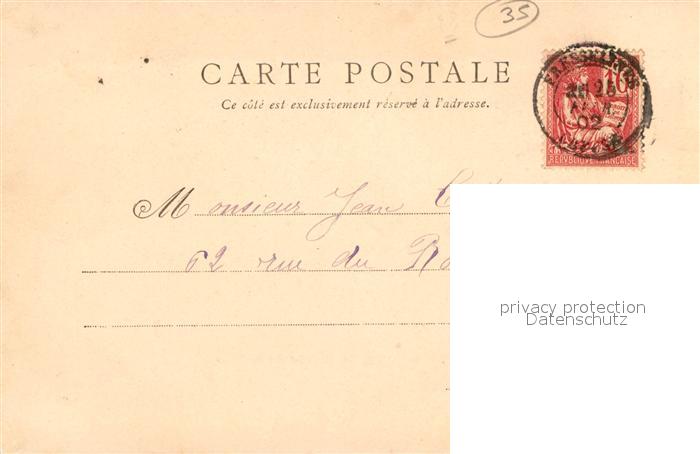 35
CARTE POSTALE
Ce côté est exclusivement réservé à l'adresse.
10
FRESSELINES
02
CREUSE
REPVBLIQVE FRANÇAISE
Monsieur Jean
62 rue du
privacy protection
Datenschutz